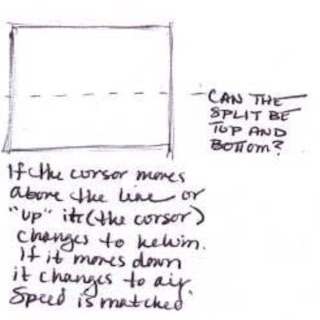 CAN THE
SPLIT BE
TOP AND
BOTTOM?
If the cursor moves
above the line or
"up" it (the cursor)
changes to kelvin.
If it moves down
it changes to air.
Speed is matched